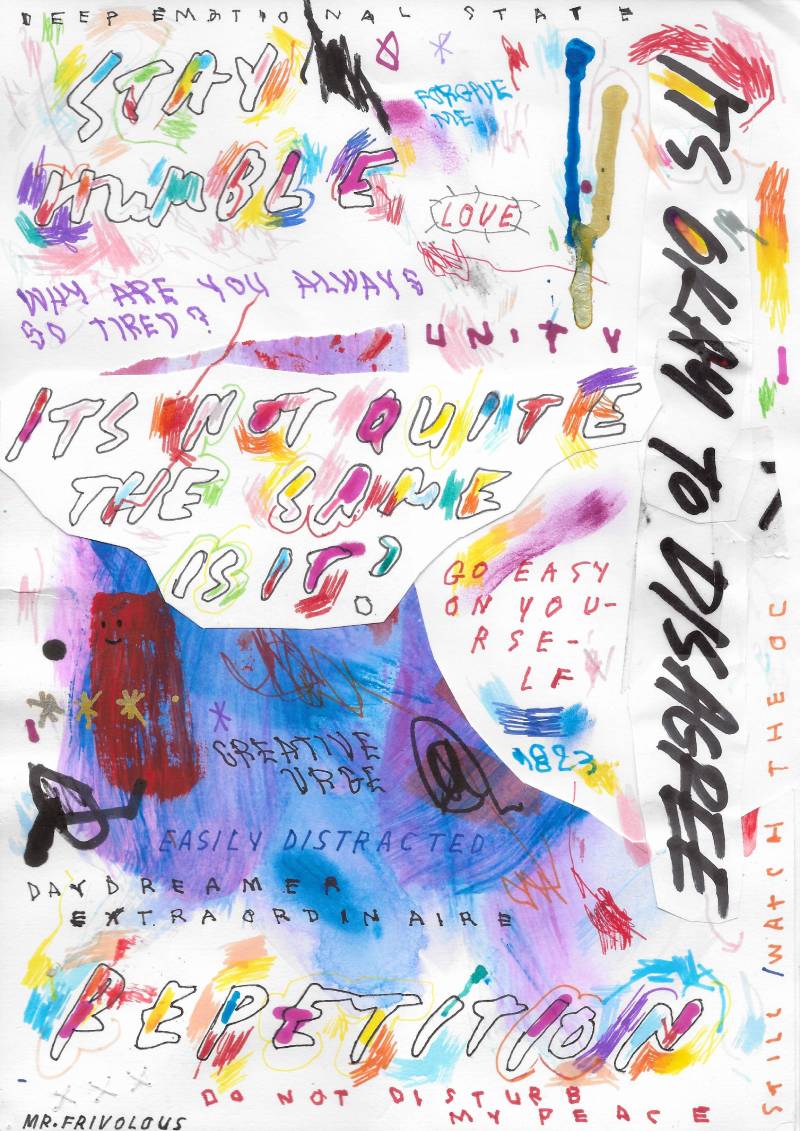 DEEP EMOTIONAL STATE
STAY
HUMBLE
FORGIVE
ME
LOVE
WHY ARE YOU ALWAYS
SO TIRED?
UNITY
ITS OKAY TO DISAGREE
ITS NOT QUITE
THE SAME
IS IT?
GO EASY
ON YOU-
RSE-
LF
1823
CREATIVE
URGE
EASILY DISTRACTED
DAYDREAMER
EXTRAORDINAIRE
STILL WATCH THE OC
REPETITION
DO NOT DISTURB
MY PEACE
x x x
MR.FRIVOLOUS